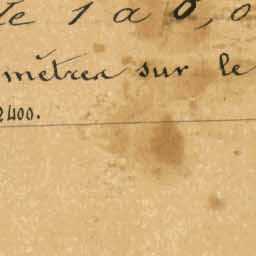 de 1 a 0,0
mètres sur le
2400.